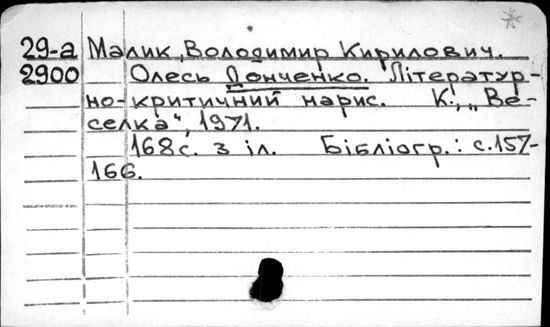 29-а Малик, Володимир Кирилович.
2900 Олесь Донченко. Літератур-
но-критичний нарис. К., „Ве-
селка", 1971.
168с. з іл. Бібліогр.: с.157-
166.